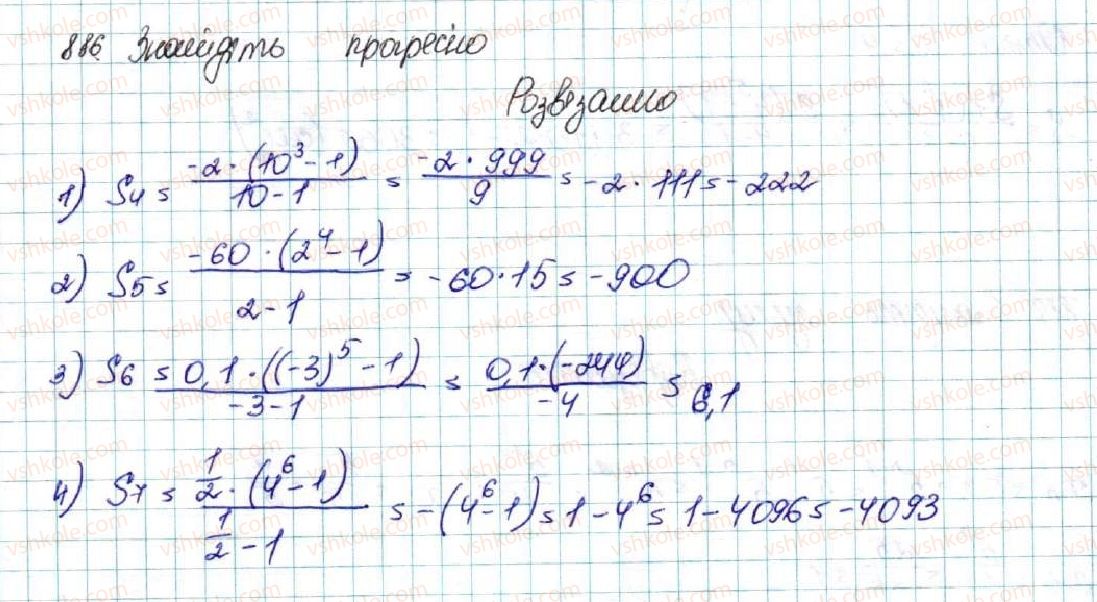 886. Знайдіть прогресію
Розв'язання
1) S₄ = (-2 · (10³ - 1))/(10 - 1) = (-2 · 999)/9 = -2 · 111 = -222
2) S₅ = (-60 · (2⁴ - 1))/(2 - 1) = -60 · 15 = -900
3) S₆ = (0,1 · ((-3)⁵ - 1))/(-3 - 1) = (0,1 · (-244))/(-4) = 6,1
4) S₇ = (1/2 · (4⁶ - 1))/(1/2 - 1) = -(4⁶ - 1) = 1 - 4⁶ = 1 - 4096 = -4093
vshkole.com